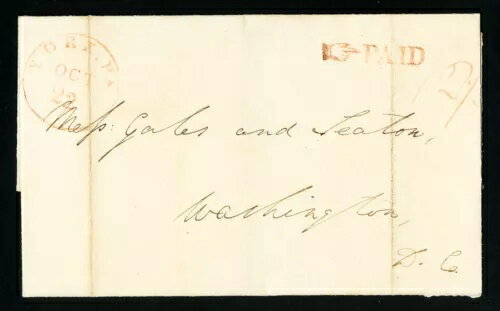 YORK. Pa
OCT
22
PAID
12/
Mess: Gales and Seaton,
Washington,
D. C.